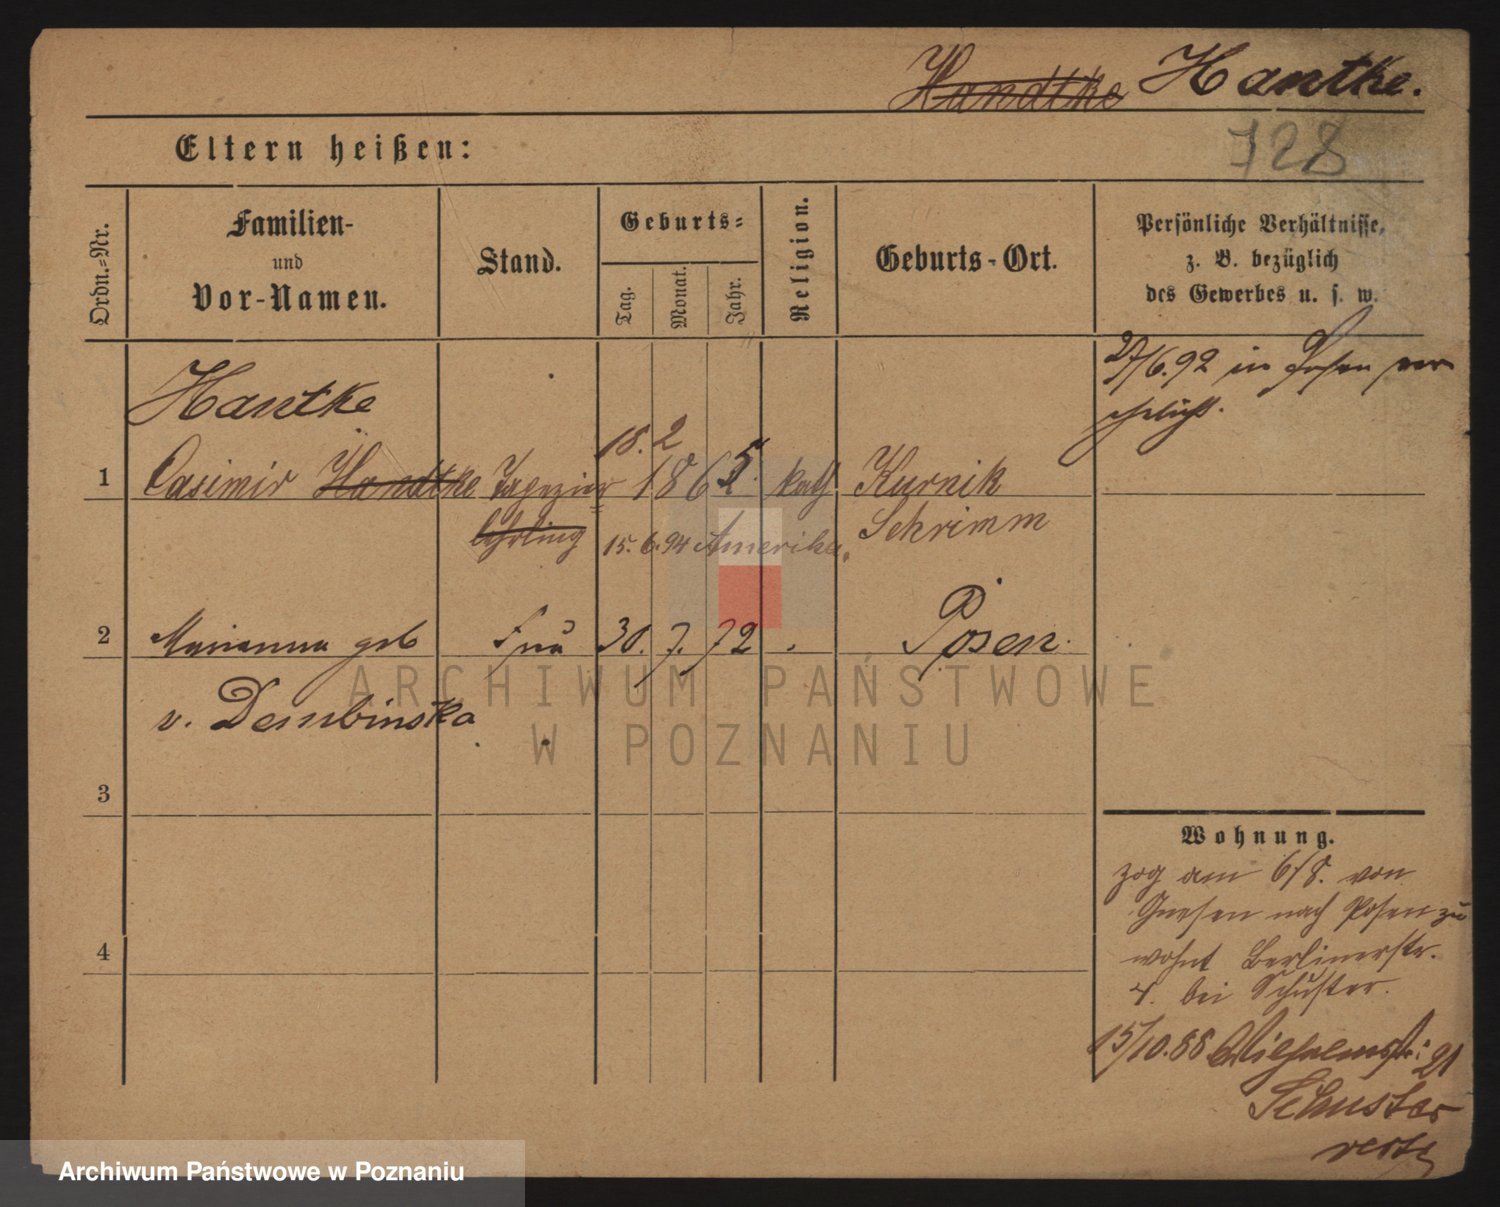 Handtke Hantke.
728
Eltern heißen:
Ordn.-Nr.
Familien-
und
Vor-Namen.
Stand.
Geburts-
Tag.
Monat.
Jahr.
Religion.
Geburts-Ort.
Persönliche Verhältnisse,
z. B. bezüglich
des Gewerbes u. s. w.
27/6.92 in Posen ver
ehelicht.
Hantke
18. 2
1 Casimir Handtke Tapezier 1865 kath Kurnik
lehrling 15.6.94 Amerika. Schrimm
2 Marianna geb Frau 30. 7. 72 Posen.
v. Dembinska
3
4
Wohnung.
zog am 6/8. von
Gnesen nach Posen zu
wohnt Berlinerstr.
4. bei Schuster.
15/10.88 Wilhelmstr: 21
Schuster
verte
ARCHIWUM PAŃSTWOWE
W POZNANIU
Archiwum Państwowe w Poznaniu